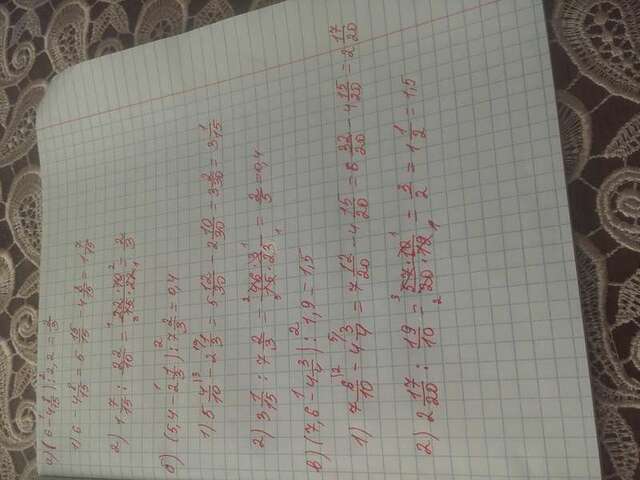 а) (6 - 4 8/15) : 2,2 = 2/3
1) 6 - 4 8/15 = 5 15/15 - 4 8/15 = 1 7/15
2) 1 7/15 : 22/10 = 22·10/15·22 = 2/3
б) (5,4 - 2 1/3) : 7 2/3 = 0,4
1) 5 4/10 - 2 1/3 = 5 12/30 - 2 10/30 = 3 2/30 = 3 1/15
2) 3 1/15 : 7 2/3 = 46·3/15·23 = 2/5 = 0,4
в) (7,6 - 4 3/4) : 1,9 = 1,5
1) 7 6/10 - 4 3/4 = 7 12/20 - 4 15/20 = 6 32/20 - 4 15/20 = 2 17/20
2) 2 17/20 : 19/10 = 57·10/20·19 = 3/2 = 1 1/2 = 1,5